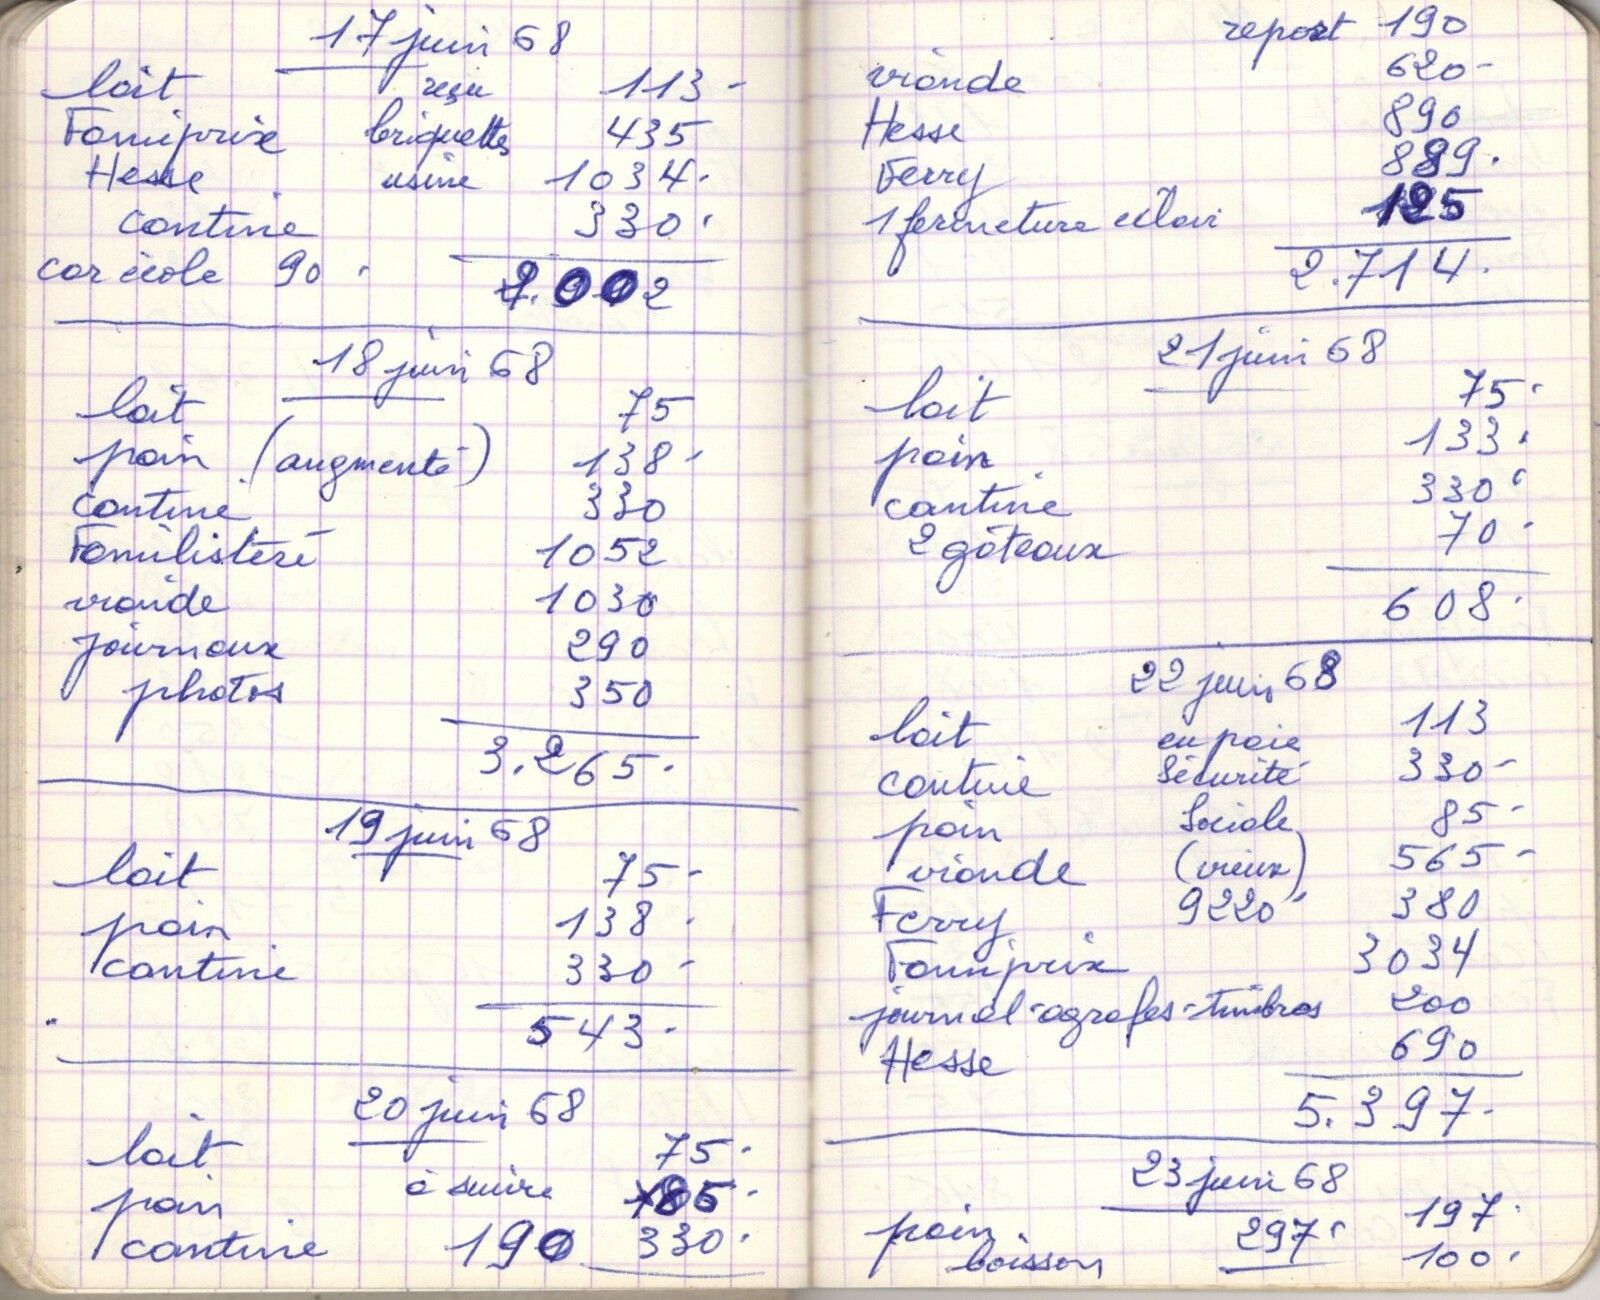 17 juin 68
lait reçu 113 -
Familiprix briquettes 435
Hesse usine 1034.
cantine 330.
car école 90. 2.002
18 juin 68
lait 75
pain (augmenté) 138.
cantine 330
Familistère 1052
viande 1030
journaux 290
photos 350
3.265.
19 juin 68
lait 75 -
pain 138.
cantine 330 -
543.
20 juin 68
lait 75.
pain à suivre
cantine 190 330.
report 190
viande 620 -
Hesse 890
Ferry 889.
1 fermeture éclair 125
2.714.
21 juin 68
lait 75.
pain 133.
cantine 330.
2 gâteaux 70 -
608.
22 juin 68
lait en paie 113
cantine Sécurité 330 -
pain Sociale 85 -
viande (vieux) 565 -
Ferry 9220 380
Familiprix 3034
journal - agrafes - timbres 200
Hesse 690
5.397.
23 juin 68
pain 197.
boisson 297. 100.